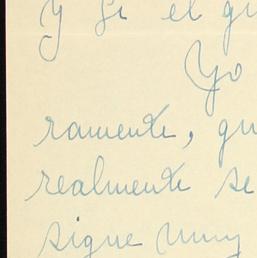 y si el qu
Yo
ramente, qu
realmente se
sigue muy